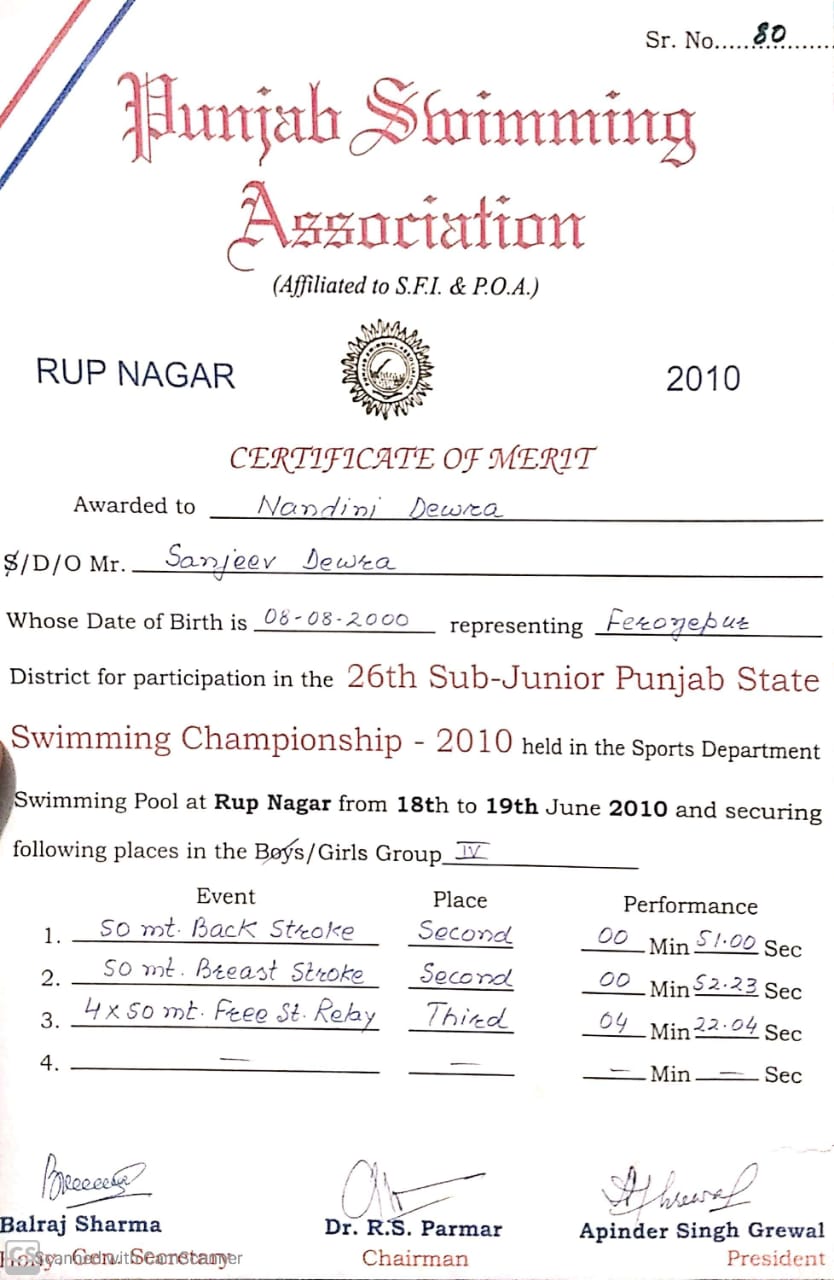 Sr. No......80......
Punjab Swimming
Association
(Affiliated to S.F.I. & P.O.A.)
RUP NAGAR 2010
CERTIFICATE OF MERIT
Awarded to Nandini Dewra
S/D/O Mr. Sanjeev Dewra
Whose Date of Birth is 08-08-2000 representing Ferozepur
District for participation in the 26th Sub-Junior Punjab State
Swimming Championship - 2010 held in the Sports Department
Swimming Pool at Rup Nagar from 18th to 19th June 2010 and securing
following places in the Boys/Girls Group IV
Event Place Performance
1. 50 mt. Back Stroke Second 00 Min 51.00 Sec
2. 50 mt. Breast Stroke Second 00 Min 52.23 Sec
3. 4x50 mt. Free St. Relay Third 04 Min 22.04 Sec
4. — — — Min — Sec
Balraj Sharma Dr. R.S. Parmar Apinder Singh Grewal
Hony. Gen. Secretary Chairman President
CS Scanned with CamScanner